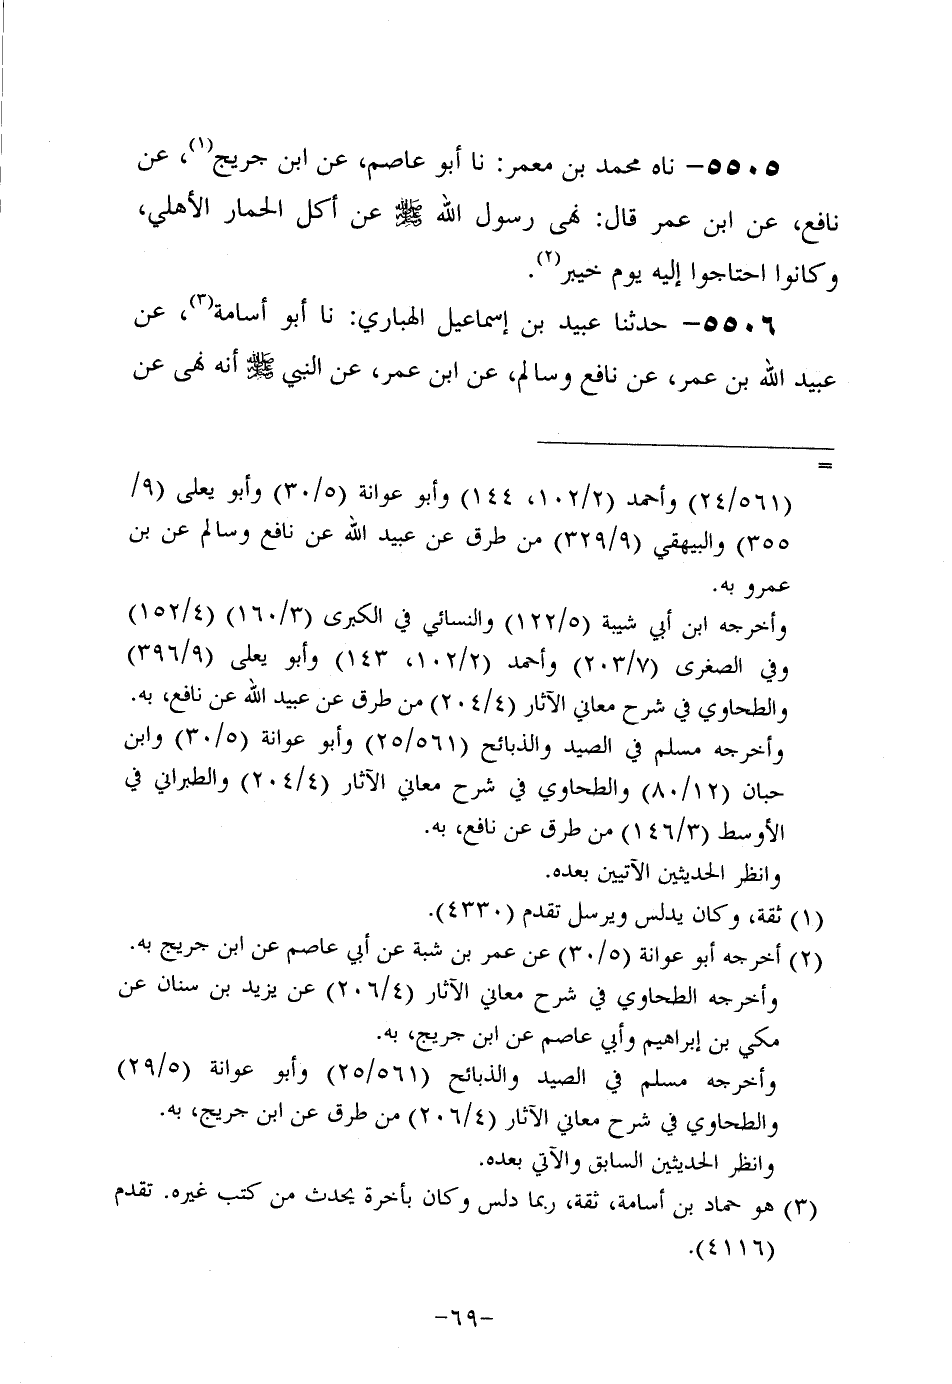 ٥٥٠٥– ناه محمد بن معمر: نا أبو عاصم، عن ابن جريج(١)، عن
نافع، عن ابن عمر قال: نهى رسول الله ﷺ عن أكل الحمار الأهلي،
وكانوا احتاجوا إليه يوم خيبر(٢).
٥٥٠٦– حدثنا عبيد بن إسماعيل الهباري: نا أبو أسامة(٣)، عن
عبيد الله بن عمر، عن نافع وسالم، عن ابن عمر، عن النبي ﷺ أنه نهى عن
=
(٢٤/٥٦١) وأحمد (١٠٢/٢، ١٤٤) وأبو عوانة (٣٠/٥) وأبو يعلى (٩/
٣٥٥) والبيهقي (٣٢٩/٩) من طرق عن عبيد الله عن نافع وسالم عن بن
عمرو به.
وأخرجه ابن أبي شيبة (١٢٢/٥) والنسائي في الكبرى (١٦٠/٣) (١٥٢/٤)
وفي الصغرى (٢٠٣/٧) وأحمد (١٠٢/٢، ١٤٣) وأبو يعلى (٣٩٦/٩)
والطحاوي في شرح معاني الآثار (٢٠٤/٤) من طرق عن عبيد الله عن نافع، به.
وأخرجه مسلم في الصيد والذبائح (٢٥/٥٦١) وأبو عوانة (٣٠/٥) وابن
حبان (٨٠/١٢) والطحاوي في شرح معاني الآثار (٢٠٤/٤) والطبراني في
الأوسط (١٤٦/٣) من طرق عن نافع، به.
وانظر الحديثين الآتيين بعده.
(١) ثقة، وكان يدلس ويرسل تقدم (٤٣٣٠).
(٢) أخرجه أبو عوانة (٣٠/٥) عن عمر بن شبة عن أبي عاصم عن ابن جريج به.
وأخرجه الطحاوي في شرح معاني الآثار (٢٠٦/٤) عن يزيد بن سنان عن
مكي بن إبراهيم وأبي عاصم عن ابن جريج، به.
وأخرجه مسلم في الصيد والذبائح (٢٥/٥٦١) وأبو عوانة (٢٩/٥)
والطحاوي في شرح معاني الآثار (٢٠٦/٤) من طرق عن ابن جريج، به.
وانظر الحديثين السابق والآتي بعده.
(٣) هو حماد بن أسامة، ثقة، ربما دلس وكان بأخرة يحدث من كتب غيره. تقدم
(٤١١٦).
–٦٩–